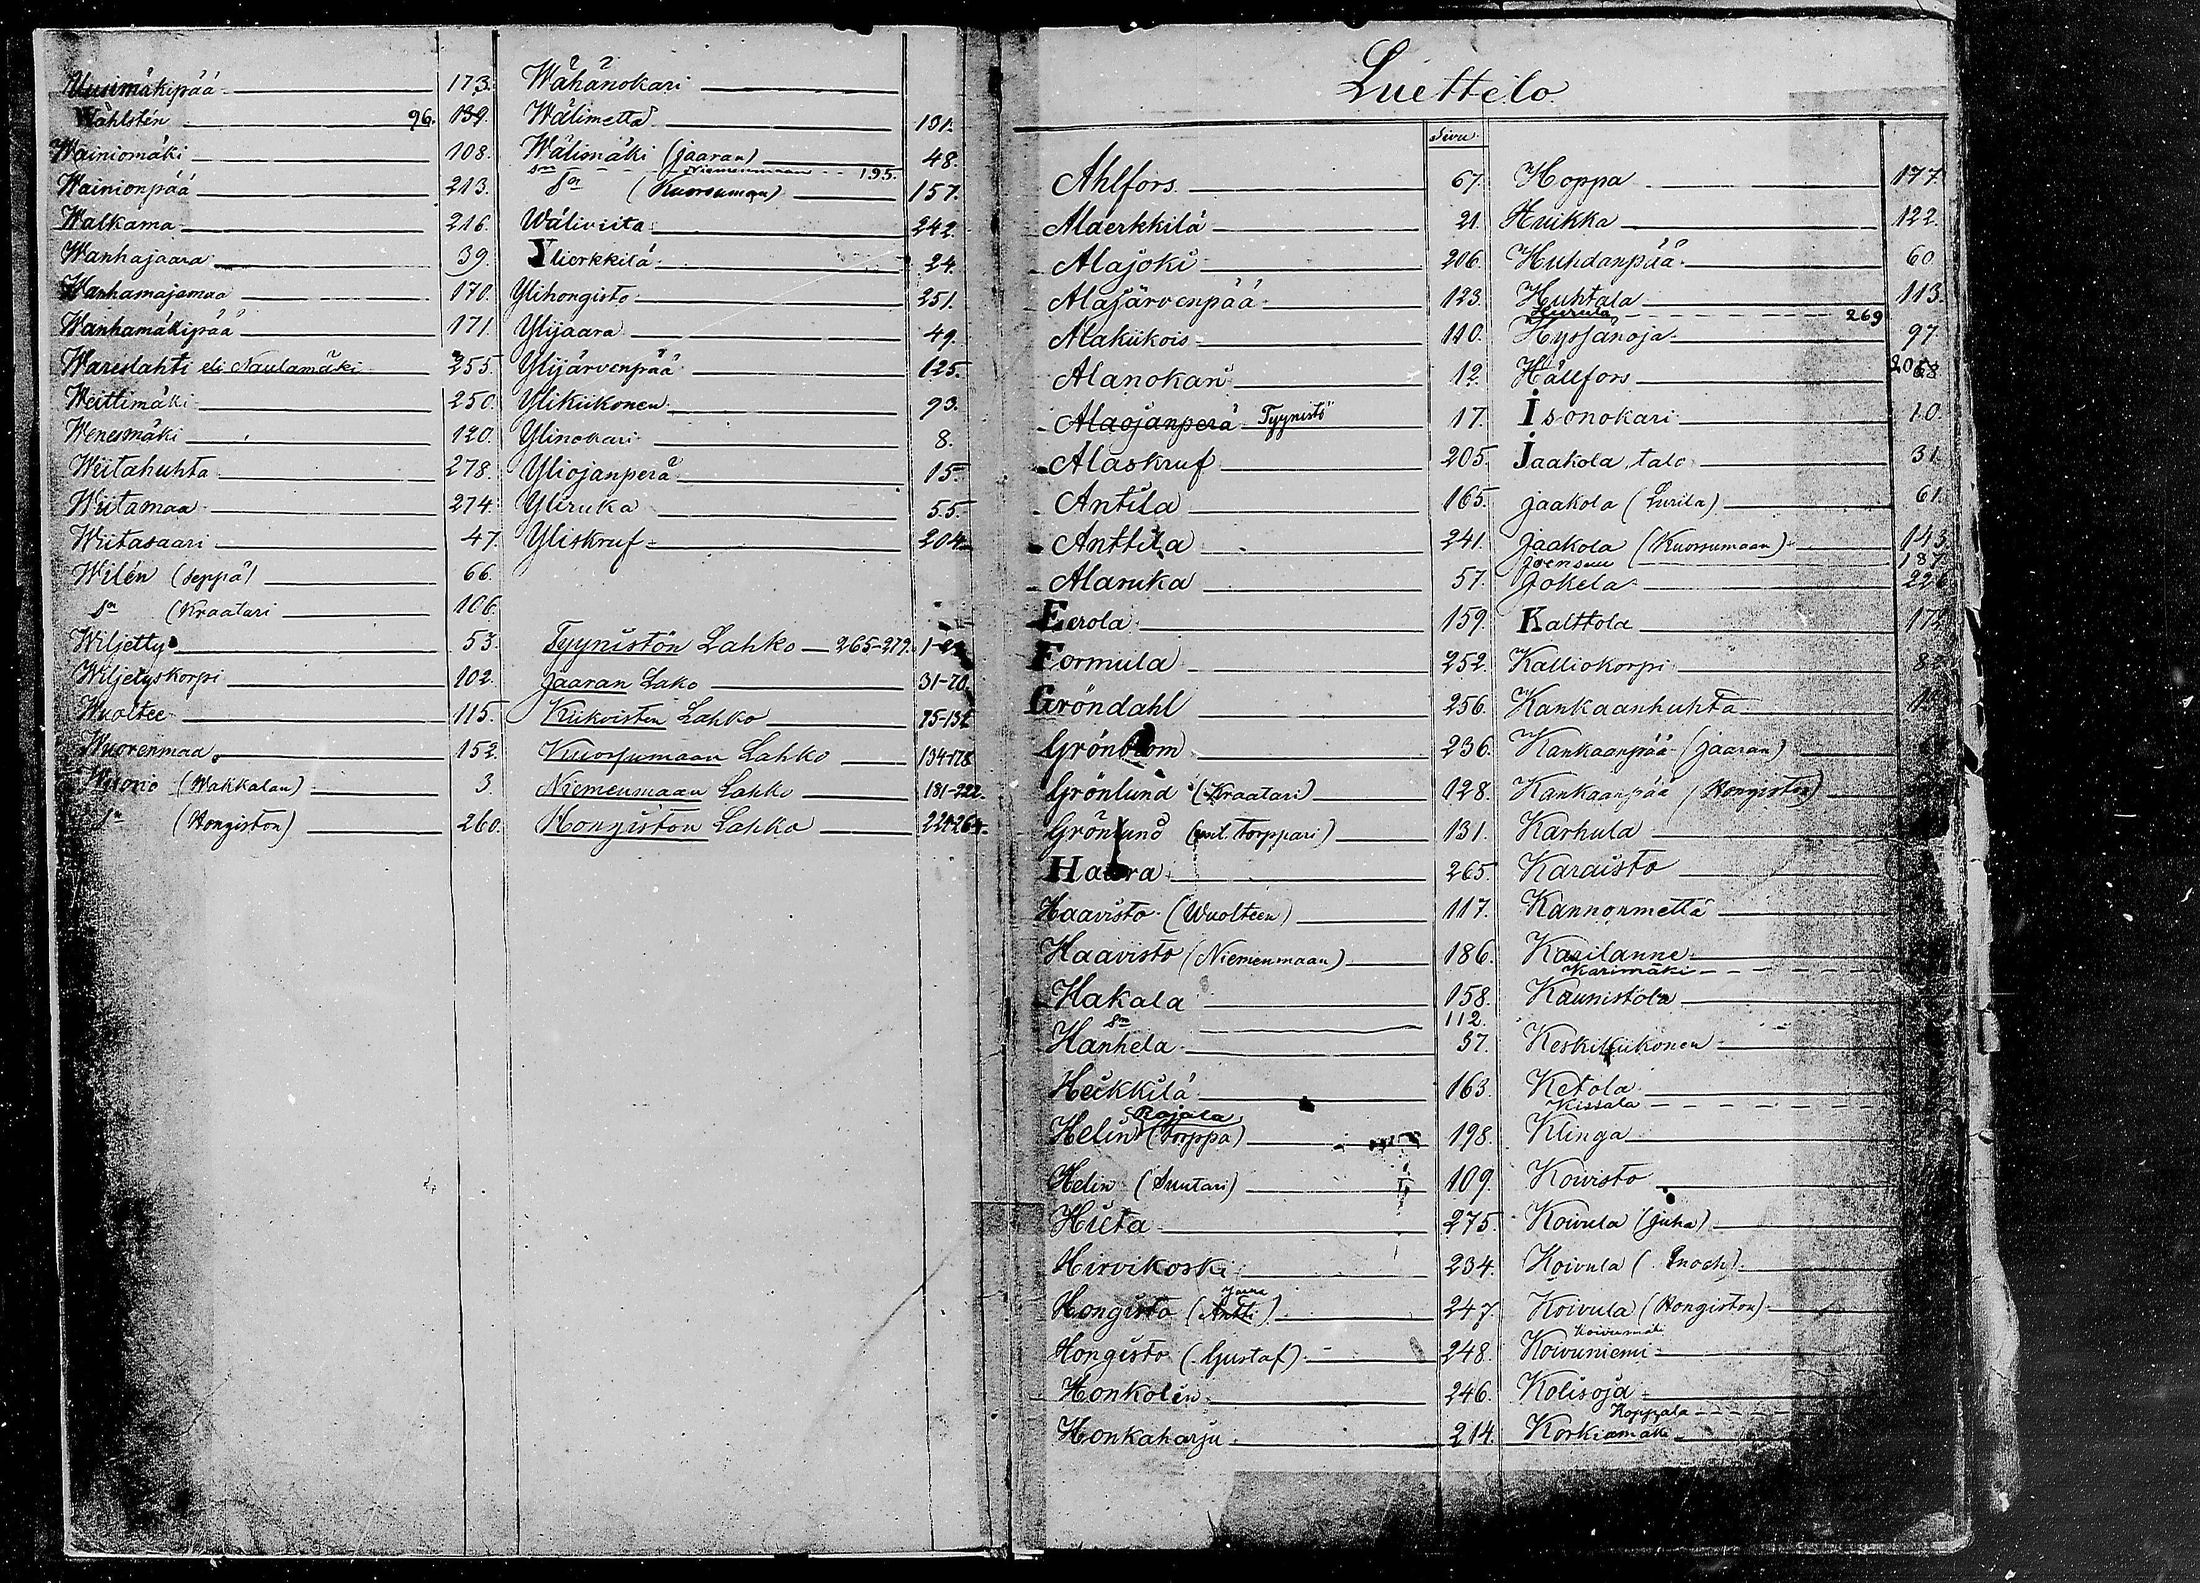 Uusimäkipää 173.
Wåhlstén 96. 139.
Wainiomäki 108.
Wainionpää 213.
Walkama 216.
Wanhajaara 39.
Wanhamajamaa 170.
Wanhamäkipää 171.
Wareslahti eli Naulamäki 255.
Weittimäki 250.
Wenesmäki 120.
Wiitahuhta 278.
Wiitamaa 274.
Wiitasaari 47.
Wilén (seppä) 66.
sn (Kraatari 106.
Wiljetty 53.
Wiljetyskorpi 102.
Wuoltee 115.
Wuorenmaa 152.
Wuorio (Wakkalan) 3.
sn (Hongiston) 260.
Wähänokari
Wälimettä 131.
Wälimäki (Jaaran) 48.
sn Niemenmaan 195.
sn (Kuorsuman) 157.
Wäliviita 242.
Ylierkkilä 24.
Ylihongisto 251.
Ylijaara 49.
Ylijärvenpää 125.
Ylikiikonen 93.
Ylinokari 8.
Yliojanperä 15.
Yliruka 55.
Yliskruf 204.
Tyynistön Lahko 265-279.
Jaaran Lako 31-70.
Kiikoisten Lahko 75-131
Kuorsumaan Lahko 134-178
Niemenmaan Lahko 181-222.
Hongiston Lahko 224-264.
Luettelo
Sivu
Ahlfors 67.
Alaerkkilä 21.
Alajoki 206.
Alajärvenpää 123.
Alakiikois 110.
Alanokari 12.
Alaojanperä Tyynistö 17.
Alaskruf 205.
Antila 165.
Anttila 241.
Alaruka 57.
Eerola 159.
Formula 252.
Gröndahl 256.
Grönblom 236.
Grönlund (Kraatari) 128.
Grönlund (ent. Torppari) 131.
Haara 265.
Haavisto (Wuolteen) 117.
Haavisto (Niemenmaan) 186.
Hakala 158.
sn 112.
Hanhela 37.
Heikkilä 163.
Rajala
Helin (torppa) 198.
Helin (Suutari) 109.
Hieta 275.
Hirvikoski 234.
Juha
Hongisto (Antti) 247.
Hongisto (Gustaf) 248.
Honkolin 246.
Honkaharju 214.
Hoppa 177.
Huikka 122.
Huhdanpää 60
Huhtala 113.
Hurula 269
Hyssänoja 97.
Hällfors
Isonokari 10.
Jaakola talo 31
Jaakola (Lurila) 61
Jaakola (Kuorsumaan) 143.
Joensuu 187.
Jokela 226
Kalttola 172
Kalliokorpi
Kankaanhuhta
Kankaanpää (Jaaran)
Kankaanpää (Hongiston)
Karhula
Karaisto
Kannonmettä
Karilanne
Karimäki
Kaunistola
Keskikiikonen
Ketola
Kissala
Klinga
Koivisto
Koivula (Juha)
Koivula (Enoch)
Koivula (Hongiston)
Koivumäki
Koivuniemi
Kolisoja
Koppala
Korkiamäki